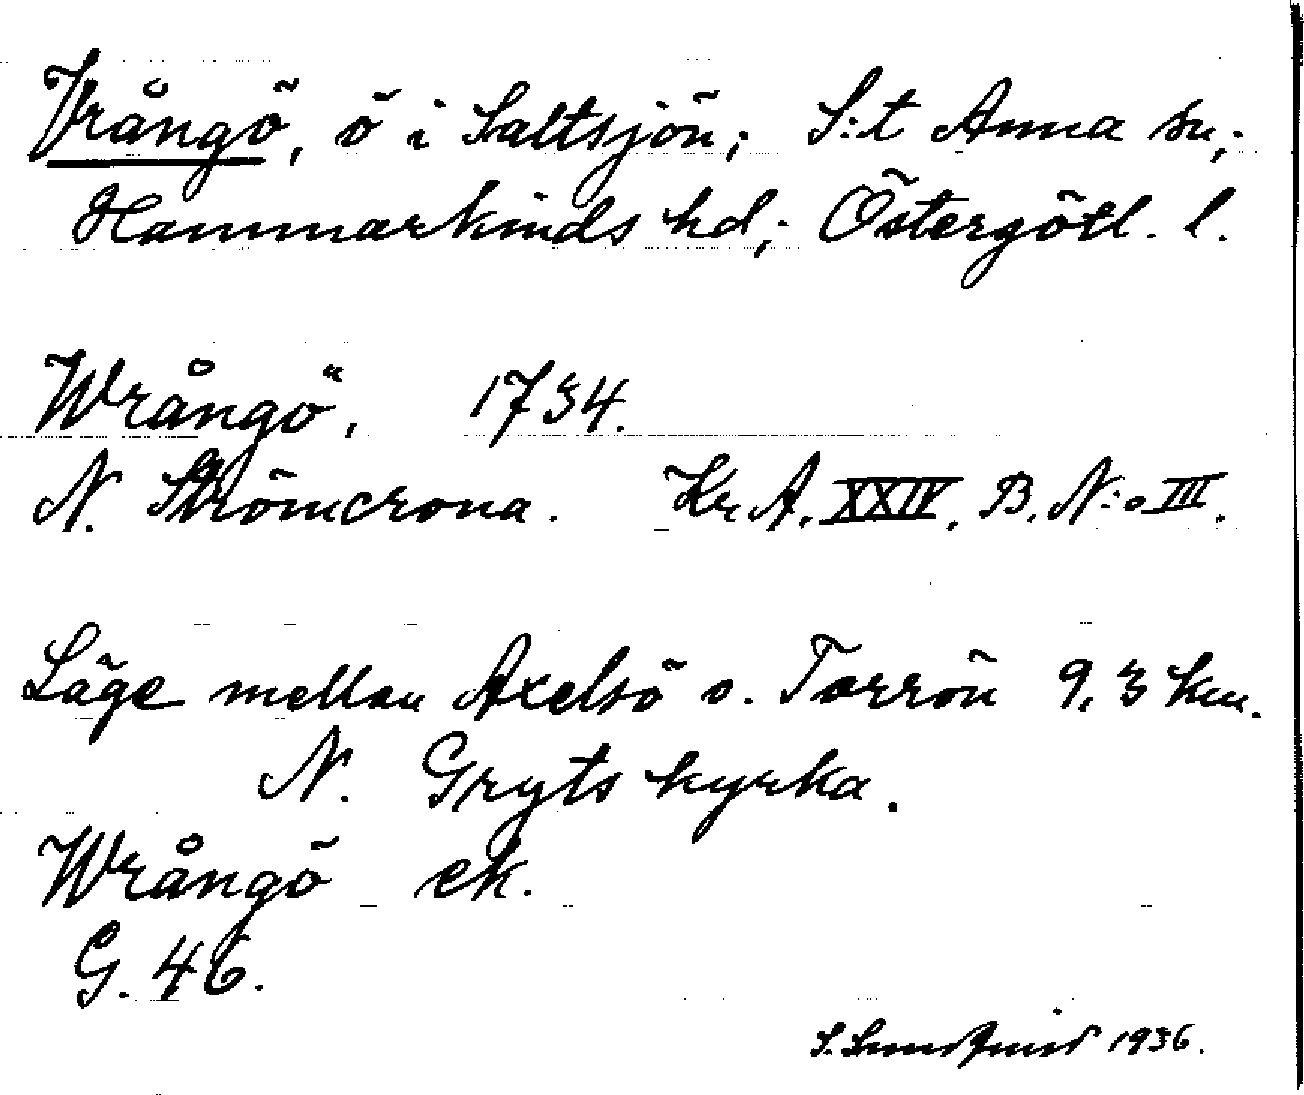 Vrångö, ö i Saltsjön; S:t Anna sn;
Hammarkinds hd; Östergötl. l.
Wrångö, 1734.
N. Strömcrona. Kr. A. XXIV. B. N:o III.
Läge mellan Axelsö o. Torrön 9,3 km.
N. Gryts kyrka.
Wrångö ek.
G. 46.
S. Sundquist 1936.